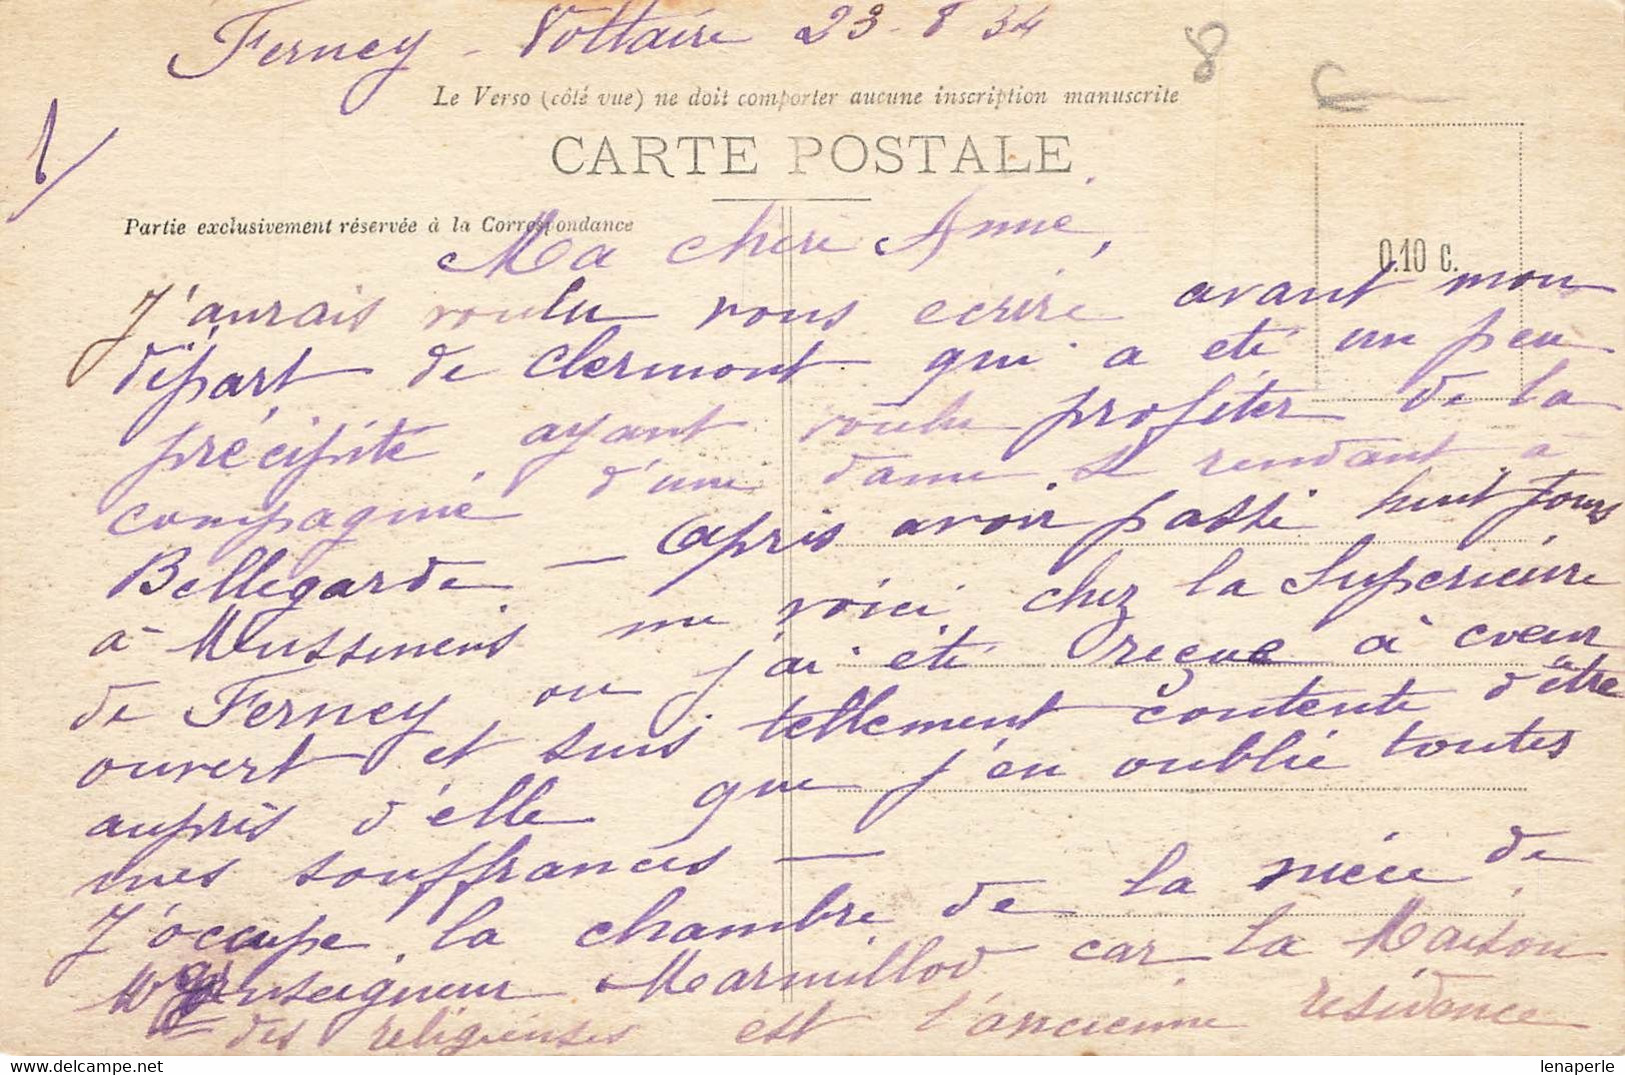 Ferney - Voltaire 23-8 34
8
Le Verso (côté vue) ne doit comporter aucune inscription manuscrite
1/
CARTE POSTALE
Partie exclusivement réservée à la Correspondance
0.10 C.
Ma chère Anne,
J'aurais voulu vous écrire avant mon
départ de Clermont qui a été un peu
précipité ayant voulu profiter de la
compagnie d'une dame se rendant à
Bellegarde — Après avoir passé huit jours
à Mussinens me voici chez la Supérieure
de Ferney ou j'ai été reçue à cœur
ouvert et suis tellement contente d'être
auprès d'elle que j'en oublie toutes
mes souffrances —
J'occupe la chambre de la nièce de
Monseigneur Marmillod car la Maison
des religieuses est l'ancienne résidence
lenaperle